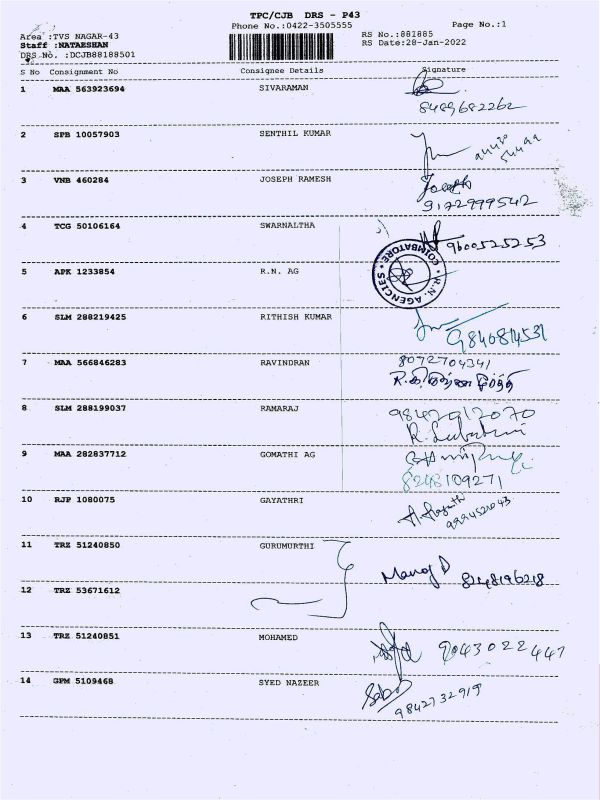 TPC/CJB DRS - P43
Phone No.:0422-3505555
Page No.:1
Area :TVS NAGAR-43
RS No.:881885
Staff :NATAESHAN
RS Date:28-Jan-2022
DRS No. :DCJB88188501
S No Consignment No Consignee Details Signature
1 MAA 563923694 SIVARAMAN
8489682262
2 SPB 10057903 SENTHIL KUMAR
3 VNB 460284 JOSEPH RAMESH Joseph
9172999542
4 TCG 50106164 SWARNALTHA 9600525253
5 APK 1233854 R.N. AG R.N. AGENCIES * COIMBATORE *
6 SLM 288219425 RITHISH KUMAR
9840814531
7 MAA 566846283 RAVINDRAN 8072704341
8 SLM 288199037 RAMARAJ 9842917070
9 MAA 282837712 GOMATHI AG
8248109271
10 RJP 1080075 GAYATHRI
9994521043
11 TRZ 51240850 GURUMURTHI
Manoj D 8248196218
12 TRZ 53671612
13 TRZ 51240851 MOHAMED 9043022447
14 GPM 5109468 SYED NAZEER
9842732919